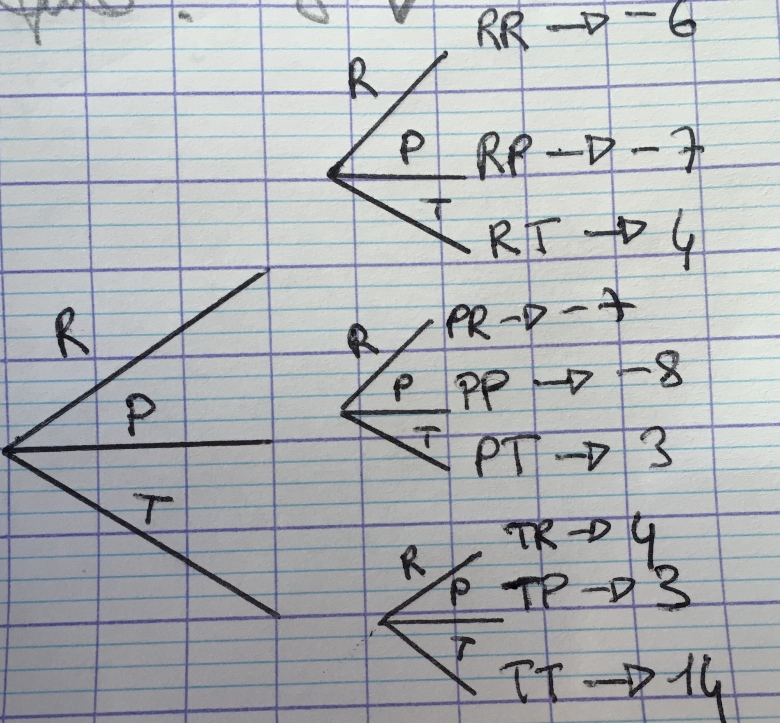 RR → -6
R
P RP → -7
T
RT → 4
R
R PR → -7
P
P PP → -8
T PT → 3
T
TR → 4
R
P TP → 3
T
TT → 14